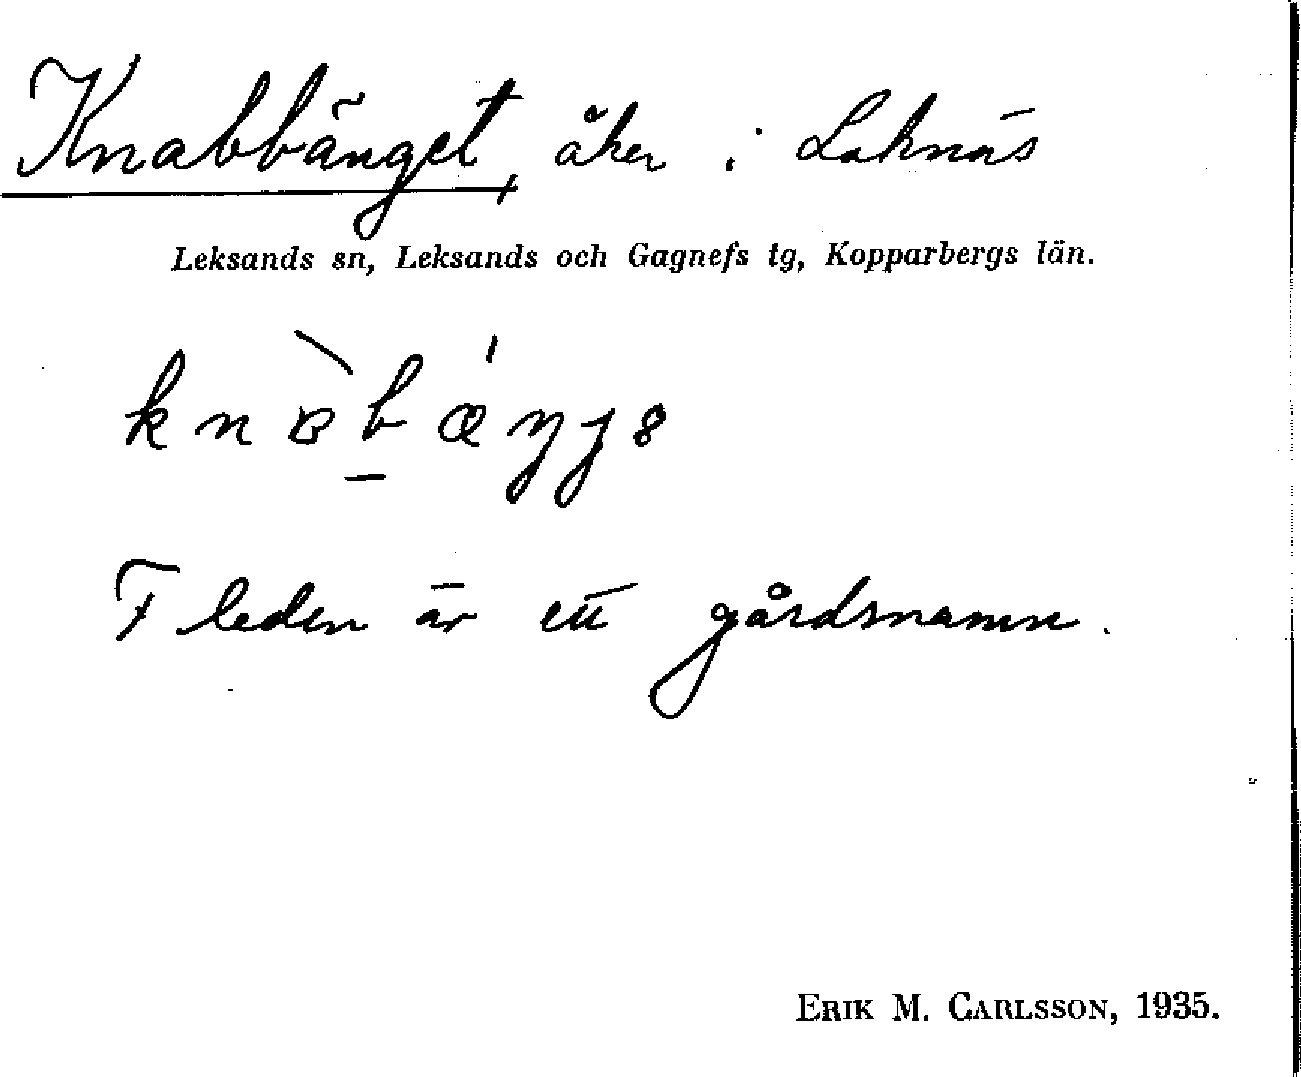 Knabbänget, åker i Laknäs
Leksands sn, Leksands och Gagnefs tg, Kopparbergs län.
F leden är ett gårdsnamn.
ERIK M. CARLSSON, 1935.